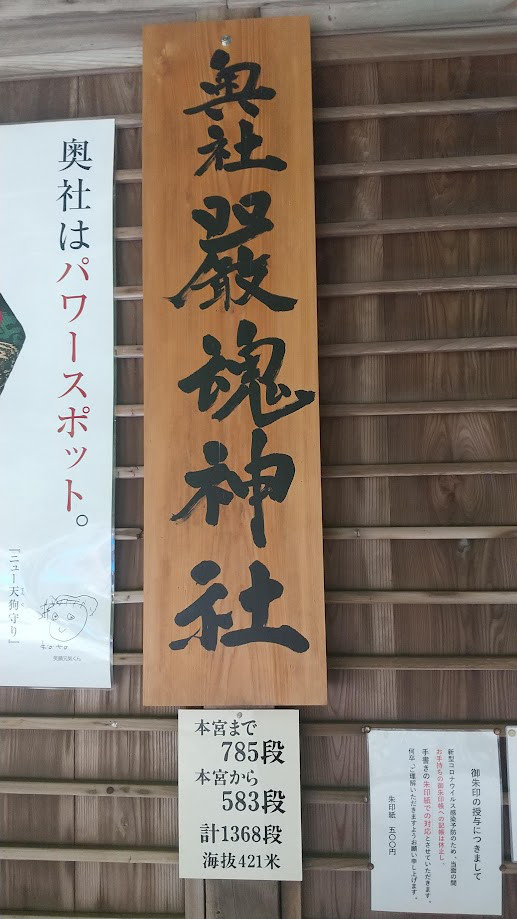 奥社
巖魂神社
奥社はパワースポット。
『ニュー天狗守り』
本宮まで
785段
本宮から
583段
計1368段
海抜421米
御朱印の授与につきまして
新型コロナウイルス感染予防のため、当面の間
お手持ちの御朱印帳への記帳は休止し、
手書きの朱印紙での対応とさせていただきます。
何卒、ご理解いただきますようお願い申し上げます。
朱印紙 五〇〇円